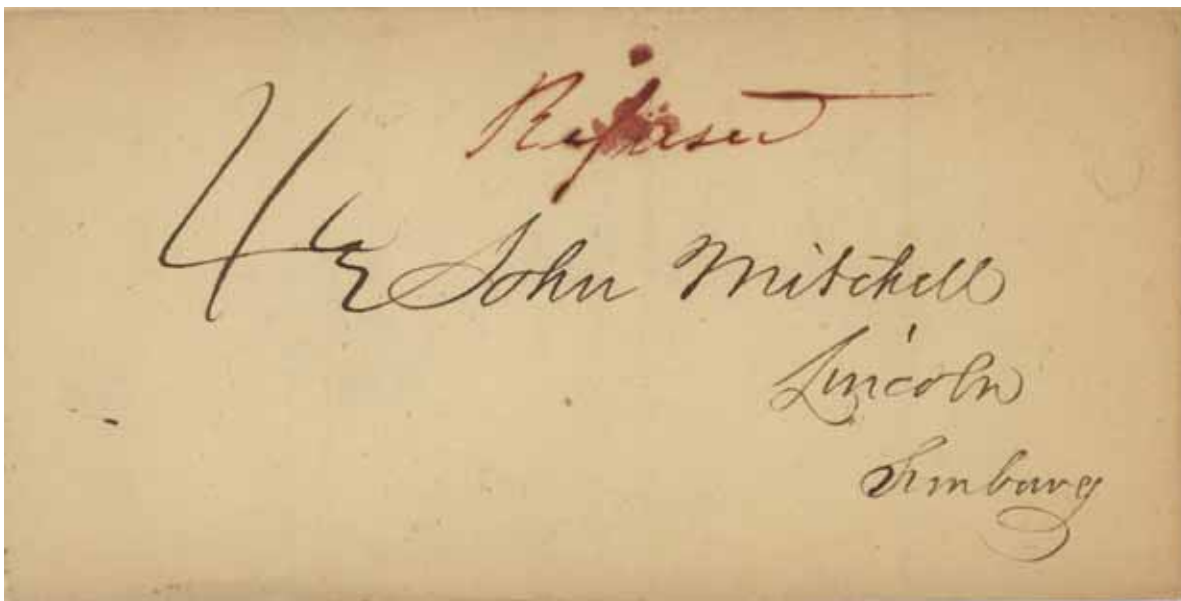 Refused
4½ John Mitchell
Lincoln
Sunbury